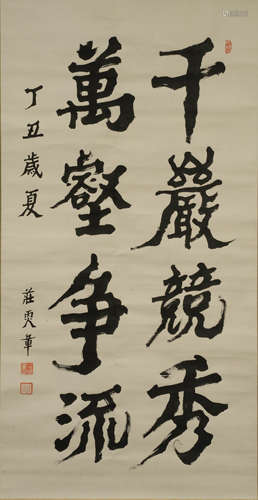 千巖競秀
萬壑争流
丁丑歲夏
莊奭章